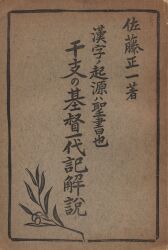 佐藤正一著
漢字ノ起源ハ聖書也
干支の基督一代記解說